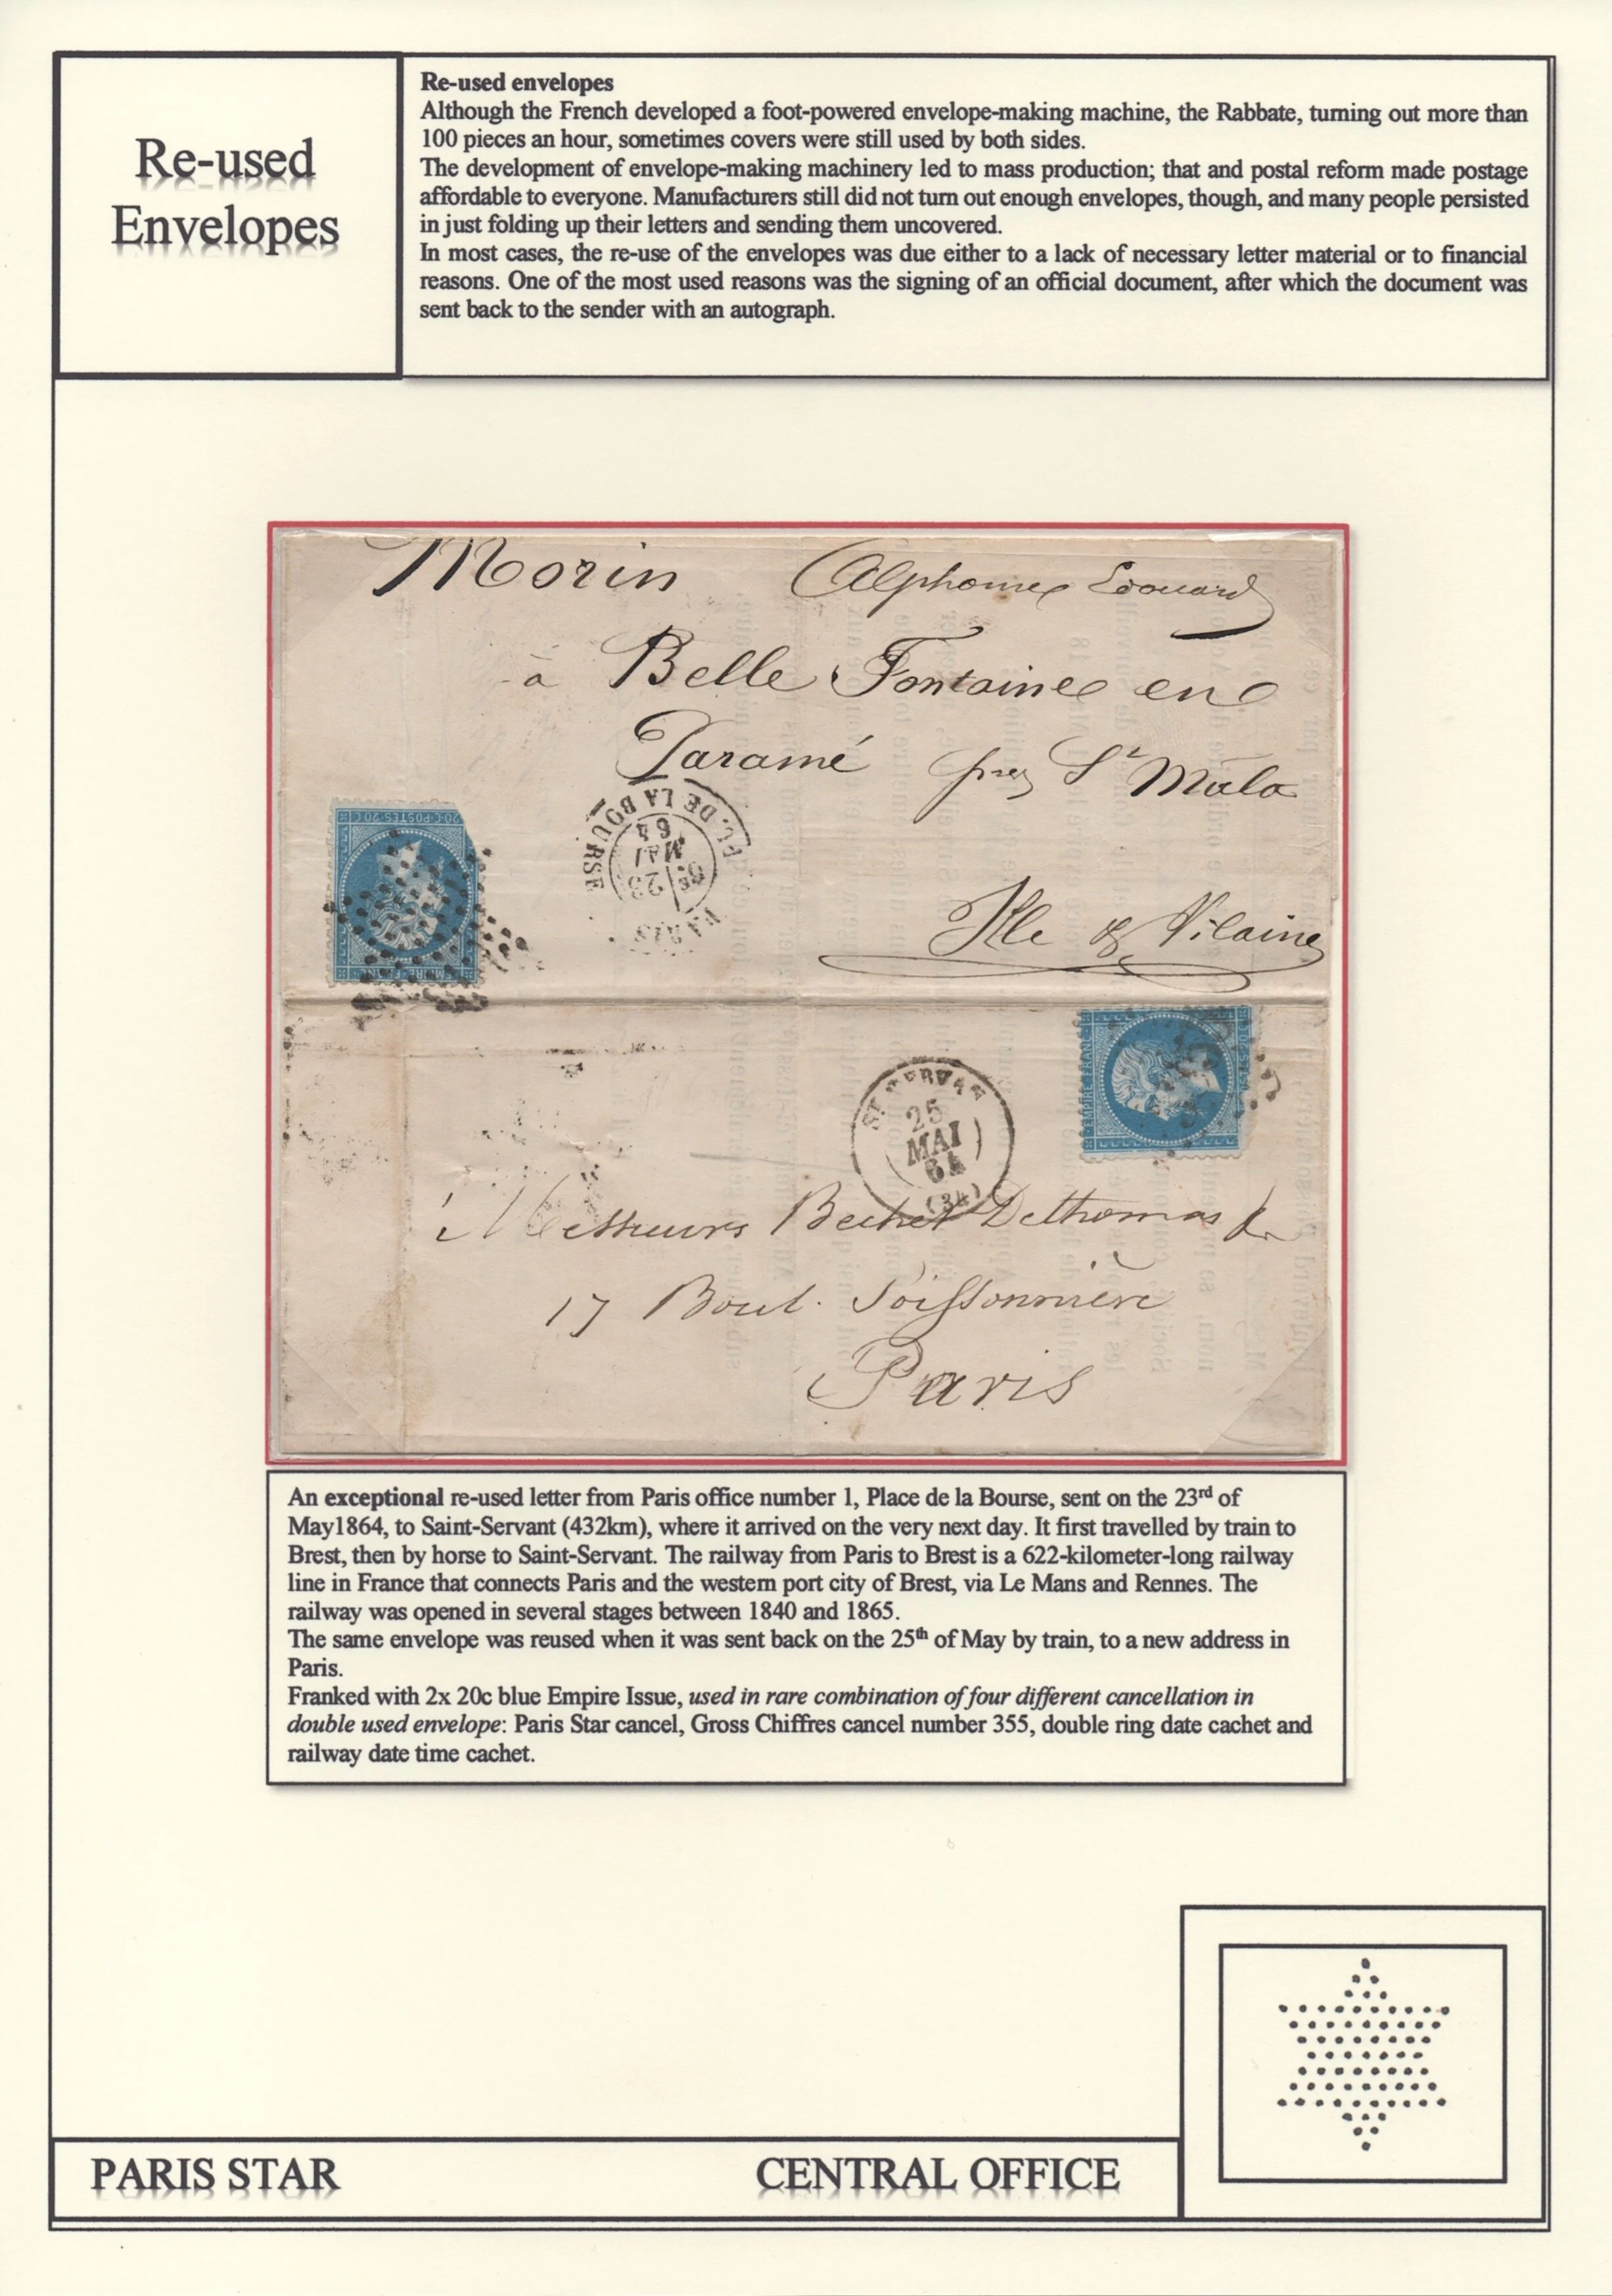 Re-used
Envelopes
Re-used envelopes
Although the French developed a foot-powered envelope-making machine, the Rabbate, turning out more than
100 pieces an hour, sometimes covers were still used by both sides.
The development of envelope-making machinery led to mass production; that and postal reform made postage
affordable to everyone. Manufacturers still did not turn out enough envelopes, though, and many people persisted
in just folding up their letters and sending them uncovered.
In most cases, the re-use of the envelopes was due either to a lack of necessary letter material or to financial
reasons. One of the most used reasons was the signing of an official document, after which the document was
sent back to the sender with an autograph.
Morin Alphonse Edouard
à Belle Fontaine en
Paramé près St Malo
PL. DE LA BOURSE
23
MAI
64
PARIS
20 C POSTES 20 C
Ille & Vilaine
EMPIRE FRANC
ST SERVAN
25
MAI
64
(34)
Messieurs Bechet Dethomas &
17 Boul. Poissonnière
Paris
An exceptional re-used letter from Paris office number 1, Place de la Bourse, sent on the 23rd of
May1864, to Saint-Servant (432km), where it arrived on the very next day. It first travelled by train to
Brest, then by horse to Saint-Servant. The railway from Paris to Brest is a 622-kilometer-long railway
line in France that connects Paris and the western port city of Brest, via Le Mans and Rennes. The
railway was opened in several stages between 1840 and 1865.
The same envelope was reused when it was sent back on the 25th of May by train, to a new address in
Paris.
Franked with 2x 20c blue Empire Issue, used in rare combination of four different cancellation in
double used envelope: Paris Star cancel, Gross Chiffres cancel number 355, double ring date cachet and
railway date time cachet.
PARIS STAR CENTRAL OFFICE